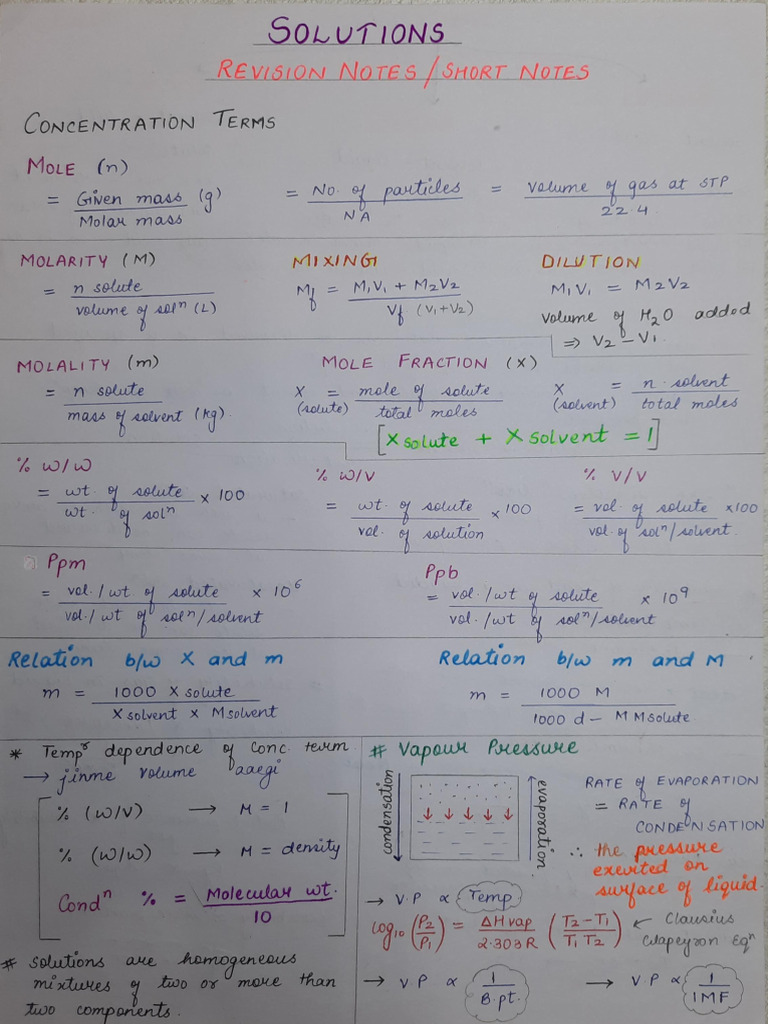 SOLUTIONS
REVISION NOTES / SHORT NOTES
CONCENTRATION TERMS
MOLE (n)
= Given mass (g) / Molar mass = No. of particles / NA = Volume of gas at STP / 22.4
MOLARITY (M)
= n solute / volume of solⁿ (L)
MIXING
Mf = M₁V₁ + M₂V₂ / Vf (V₁+V₂)
DILUTION
M₁V₁ = M₂V₂
Volume of H₂O added
⇒ V₂ – V₁
MOLALITY (m)
= n solute / mass of solvent (kg).
MOLE FRACTION (X)
X (solute) = mole of solute / total moles
X (solvent) = n. solvent / total moles
[X solute + X solvent = 1]
% W/W
= wt. of solute / wt. of solⁿ × 100
% W/V
= wt. of solute / vol. of solution × 100
% V/V
= vol. of solute / vol. of solⁿ/solvent. × 100
Ppm
= vol./wt. of solute / vol./wt of solⁿ/solvent × 10⁶
Ppb
= vol./wt of solute / vol./wt of solⁿ/solvent × 10⁹
Relation b/w X and m
m = 1000 X solute / X solvent × M solvent
Relation b/w m and M
m = 1000 M / 1000 d – M Msolute
* Tempʳ dependence of Conc. term
→ jinme volume aaegi
% (W/V) → M = 1
% (W/W) → M = density
Condⁿ % = Molecular wt. / 10
# solutions are homogeneous
mixtures of two or more than
two components.
# Vapour Pressure
condensation
evaporation
RATE OF EVAPORATION
= RATE OF
CONDENSATION
∴ the pressure
exerted on
surface of liquid.
→ V.P ∝ Temp
log₁₀ (P₂/P₁) = ΔHvap / 2.303R (T₂–T₁ / T₁T₂) ← Clausius
Clapeyron Eqⁿ
→ V.P ∝ 1 / B.pt. → V.P ∝ 1 / IMF